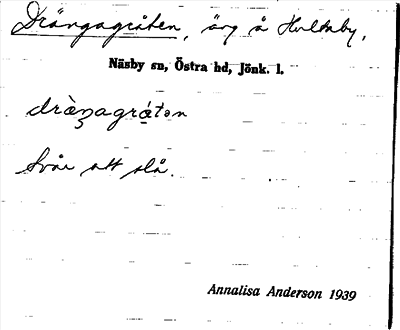 Drängagråten, äng å Hultaby,
Näsby sn, Östra hd, Jönk. l.
drὰŋagrά̥tən
Svår att slå.
Annalisa Anderson 1939